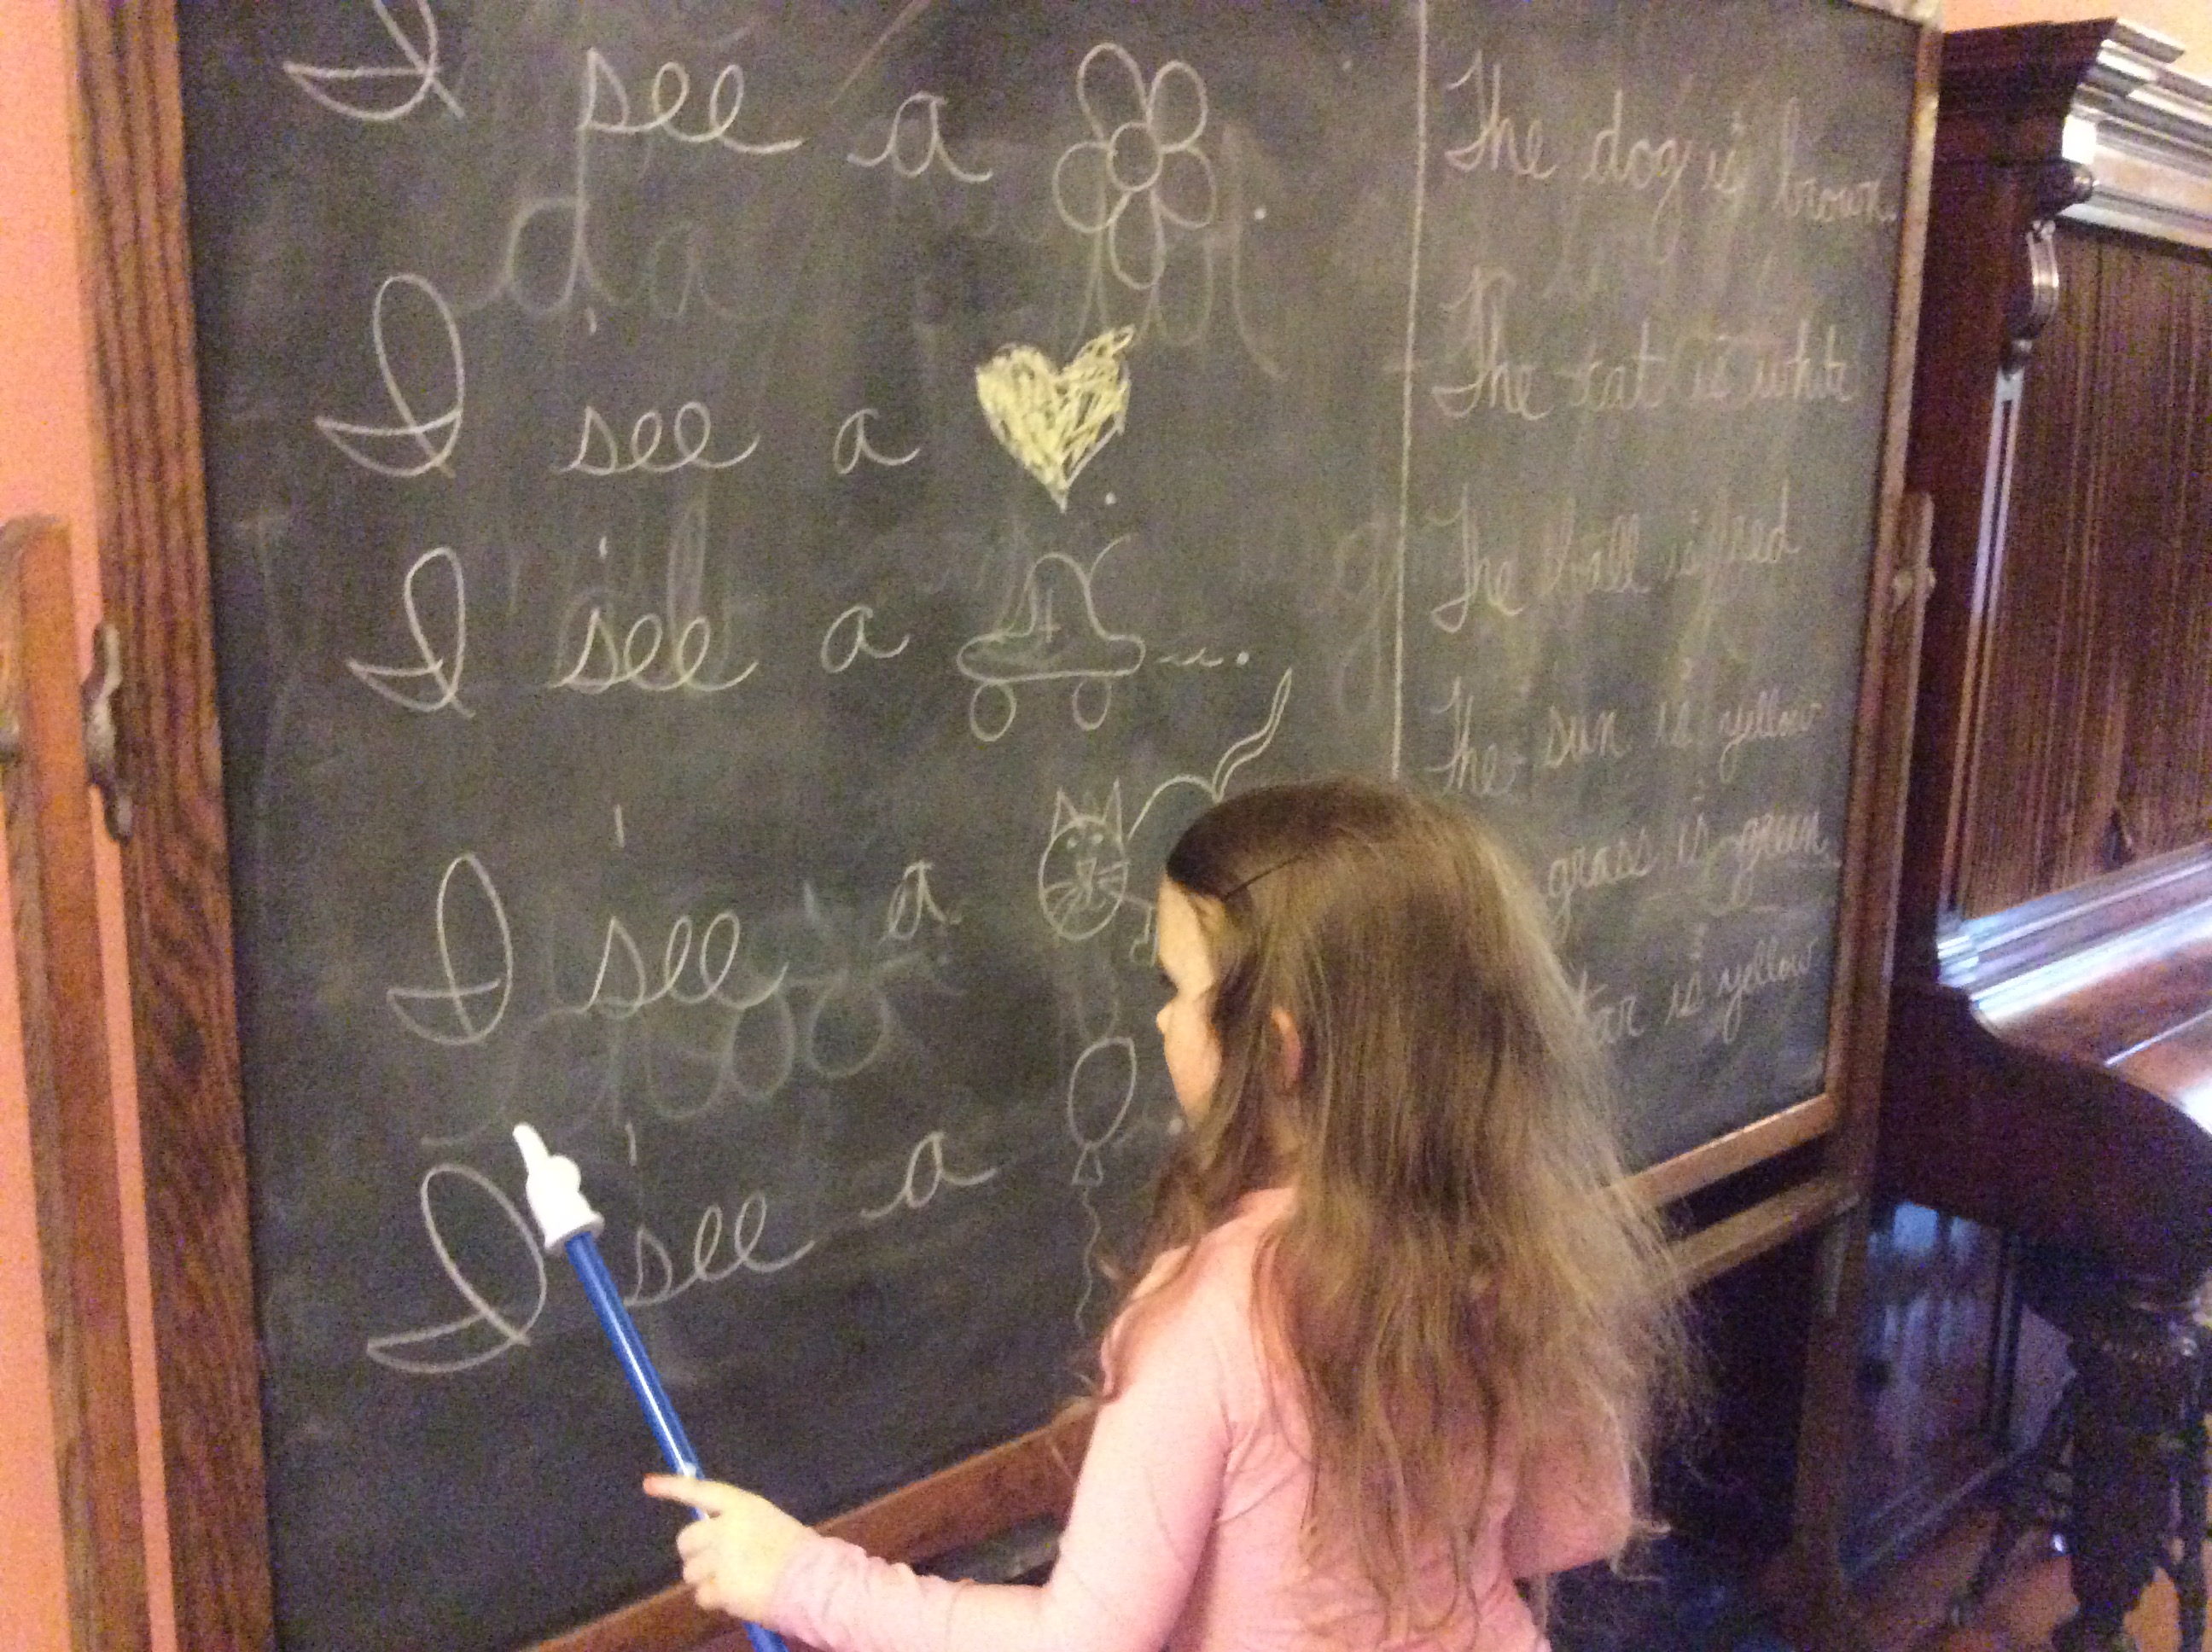 I see a
I see a
I see a
I see a
I see a
The dog is brown.
The cat is white
The ball is red
The sun is yellow
grass is green
is yellow